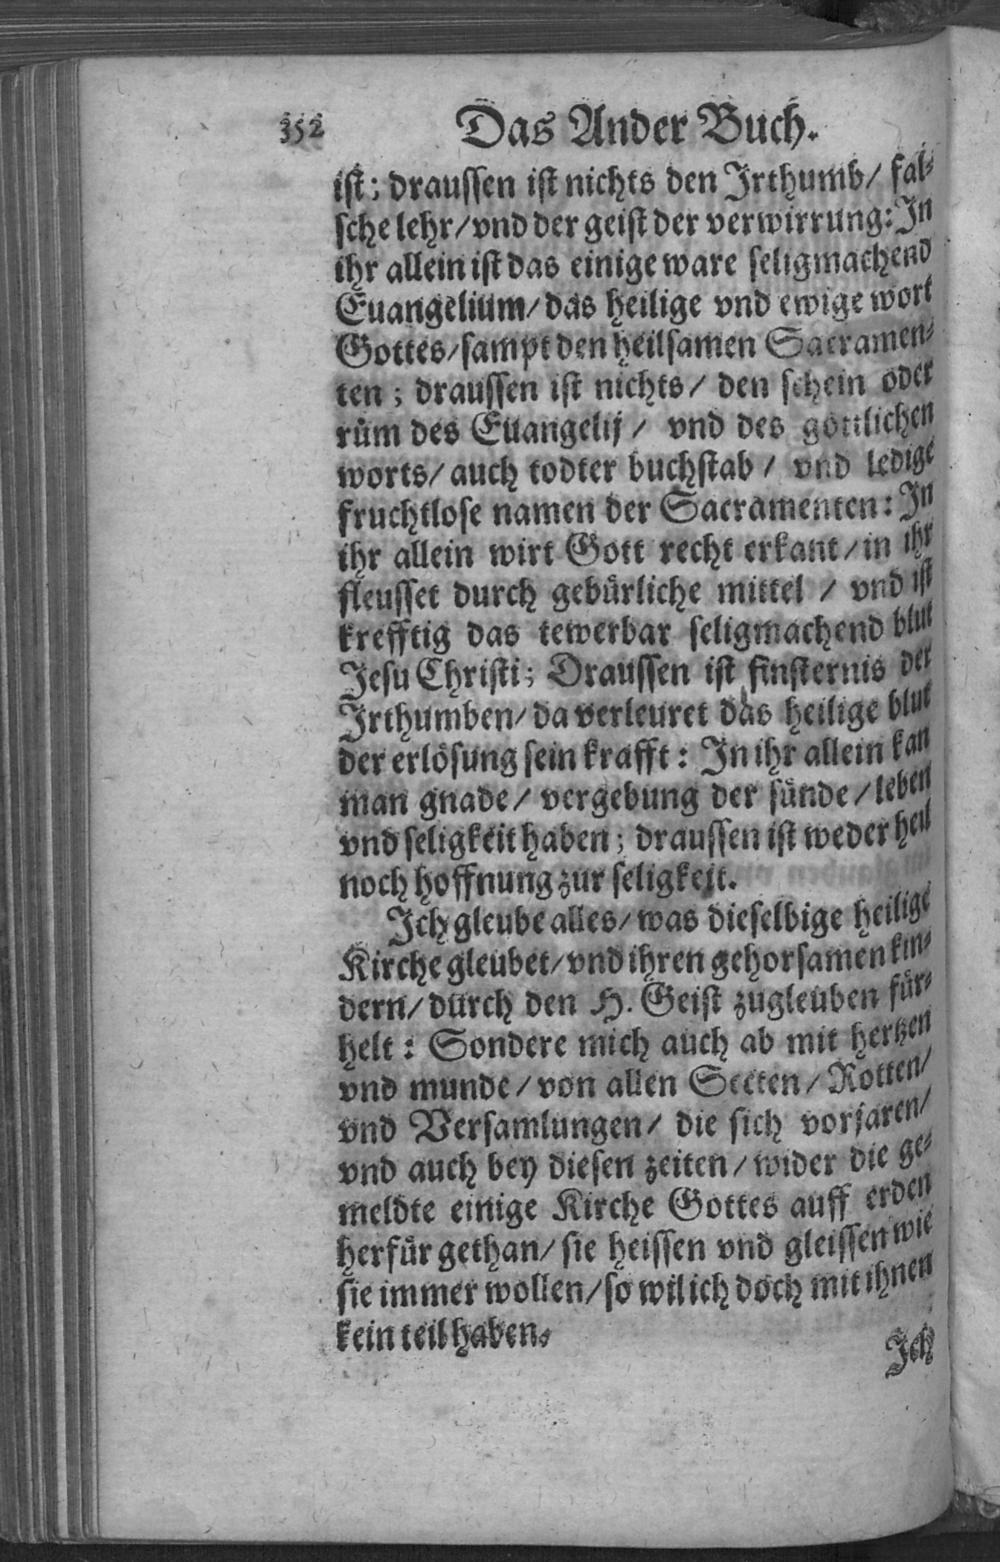 352 Das Ander Buch.
ist; draussen ist nichts den Irthumb/ fal-
sche lehr/ vnd der geist der verwirrung: In
ihr allein ist das einige ware seligmachend
Euangelium/ das heilige vnd ewige wort
Gottes/ sampt den heilsamen Sacramen-
ten; draussen ist nichts/ den schein oder
rům des Euangelij/ vnd des gottlichen
worts/ auch todter buchstab/ vnd ledige
fruchtlose namen der Sacramenten: In
ihr allein wirt Gott recht erkant/ in ihr
fleusset durch gebürliche mittel/ vnd ist
krefftig das tewerbar seligmachend blut
Jesu Christi; Draussen ist finsternis der
Irthumben/ da verleuret das heilige blut
der erlösung sein krafft: In ihr allein kan
man gnade/ vergebung der sünde/ leben
vnd seligkeit haben; draussen ist weder heil
noch hoffnung zur seligkeit.
Ich gleube alles/ was dieselbige heilige
Kirche gleubet/ vnd ihren gehorsamen kin-
dern/ durch den H. Geist zugleuben für-
helt: Sondere mich auch ab mit hertzen
vnd munde/ von allen Secten/ Rotten/
vnd Versamlungen/ die sich vorjaren/
vnd auch bey diesen zeiten/ wider die ge-
meldte einige Kirche Gottes auff erden
herfür gethan/ sie heissen vnd gleissen wie
sie immer wollen/ so wil ich doch mit ihnen
kein teil haben.
Ich